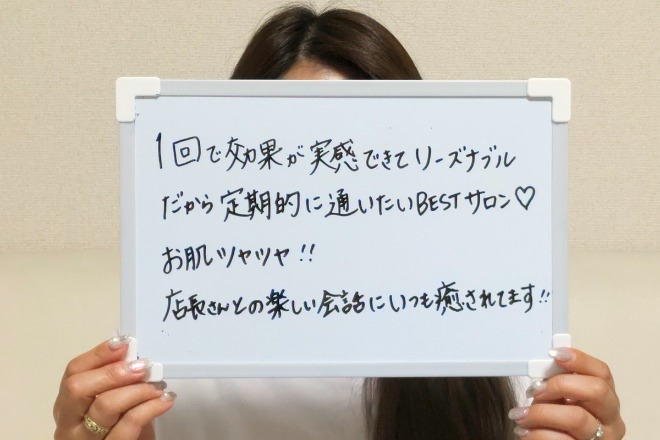 1回で効果が実感できてリーズナブル
だから定期的に通いたいBESTサロン♡
お肌ツヤツヤ!!
店長さんとの楽しい会話にいつも癒されてます!!